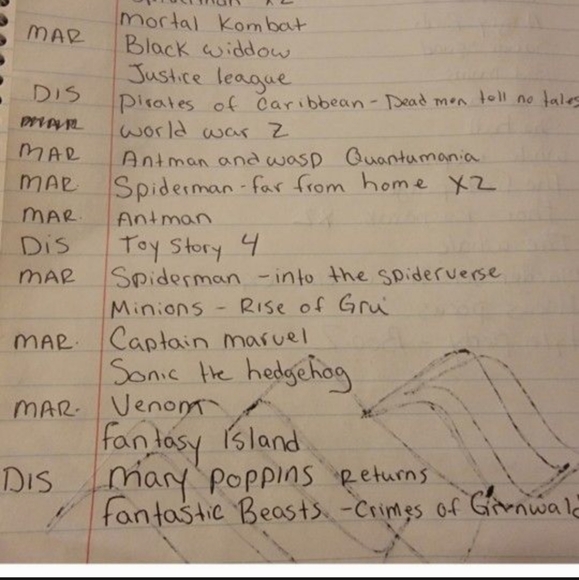 x2
Mortal Kombat
MAR Black widdow
Justice league
DIS Pirates of Caribbean - Dead men tell no tales
World War Z
MAR Antman and wasp Quantumania
MAR Spiderman - far from home X2
MAR. Antman
DiS Toy Story 4
MAR Spiderman - into the spiderverse
Minions - Rise of Gru
MAR. Captain marvel
Sonic the hedgehog
MAR. Venom
fantasy Island
DIS Mary Poppins Returns
fantastic Beasts - Crimes of